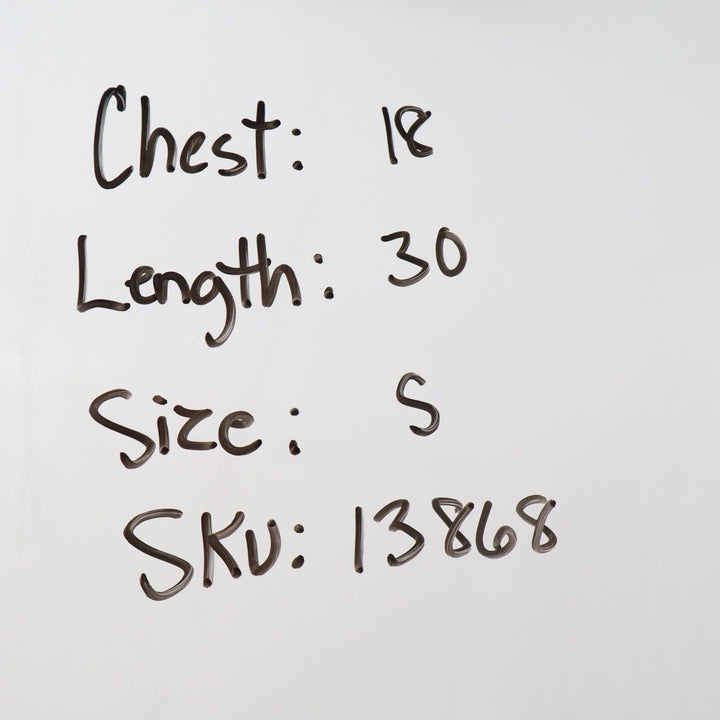 Chest: 18
Length: 30
Size: S
SKU: 13868